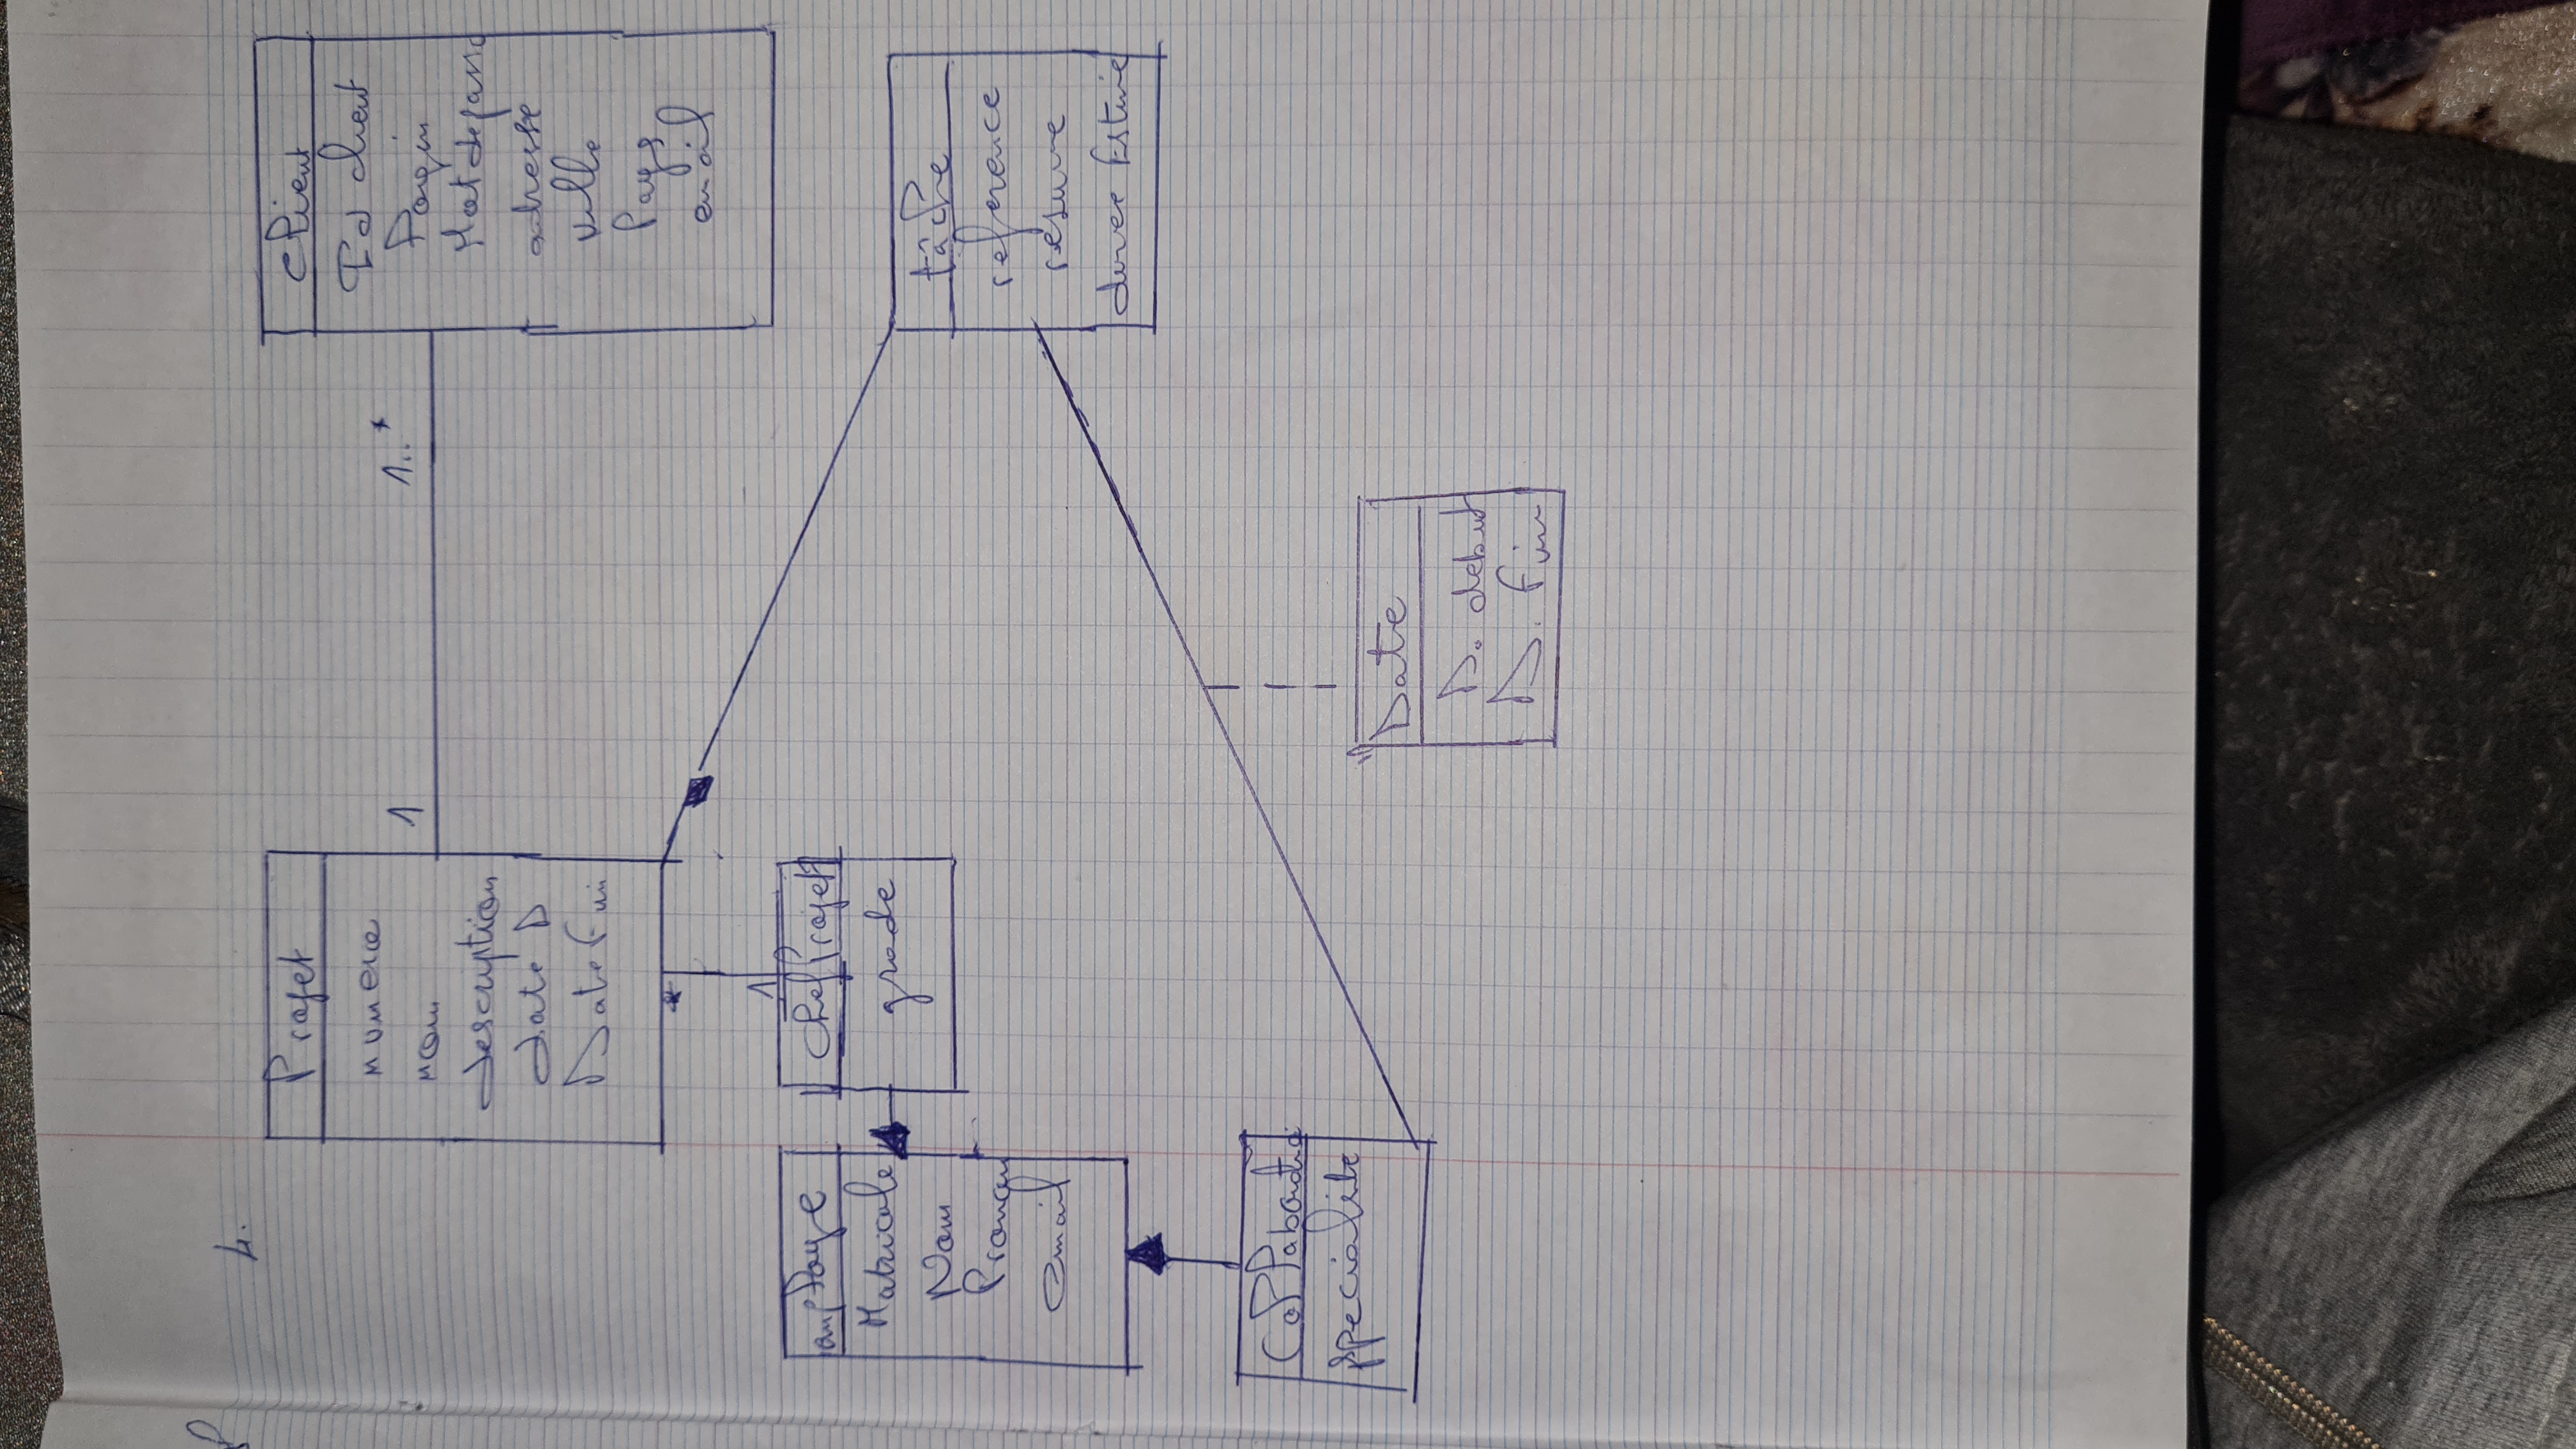 4.
Projet
numero
nom
description
date D
Date Fin
1
1..*
Client
Id client
Login
Mot de passe
adresse
ville
Pays
email
*
1
employe
Matricule
Nom
Prenom
email
Chef Projet
grade
tâche
reference
resume
duree Estime
Collaborateur
specialite
Date
D. debut
D. Fin